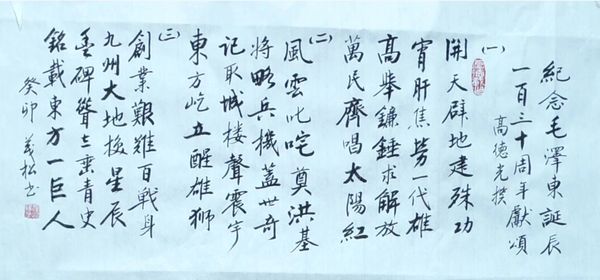 紀念毛澤東誕辰
一百三十周年獻頌
高德光撰
(一)
開天辟地建殊功
宵肝焦勞一代雄
高舉鐮錘求解放
萬民齊唱太陽紅
(二)
風雲叱咤奠洪基
將略兵機蓋世奇
記取城楼聲震宇
東方屹立醒雄獅
(三)
創業艱難百戰身
九州大地換星辰
碑聳立垂青史
銘載東方一巨人
癸卯 義松书